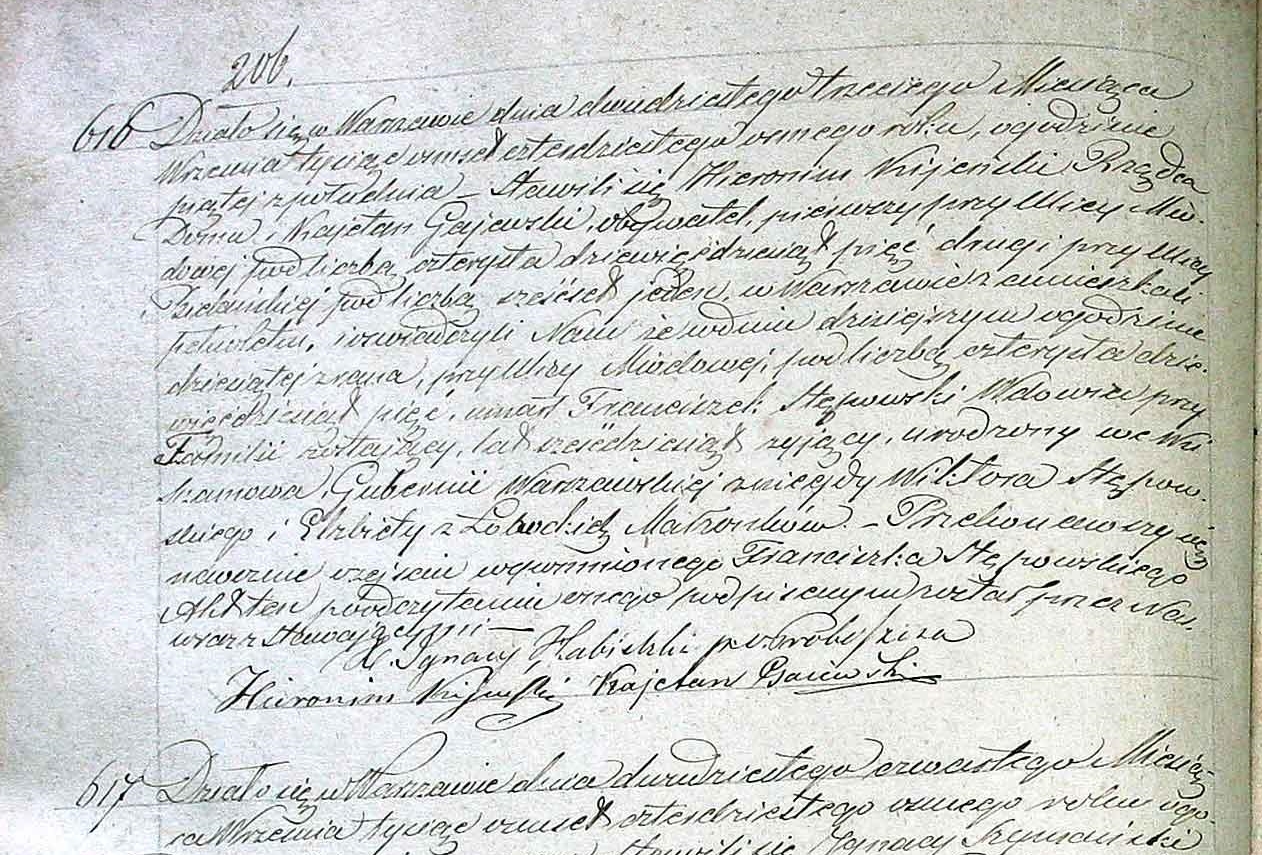 206.
616 Działo się w Warszawie dnia dwudziestego trzeciego Miesiąca
Września tysiąc ośmset czterdziestego osmego roku, o godzinie
piątej z południa – Stawili się Hieronim Kijeński Rządca
Domu, i Kajetan Gajewski, obywatel, pierwszy przy Ulicy Mio-
dowej pod liczbą czterysta dziewięćdziesiąt pięć drugi przy Ulicy
Bielańskiej pod liczbą sześćset jeden, w Warszawie zamieszkali
pełnoletni, i oświadczyli Nam że w dniu dzisiejszym o godzinie
dziesiątej z rana, przy Ulicy Miodowej, pod liczbą czterysta dzie-
więćdziesiąt pięć, umarł Franciszek Stępowski Wdowiec przy
Familii zostający, lat sześćdziesiąt żyjący, urodzony we Wsi
Gubernii Warszawskiej z niegdy Wiktora Stępow-
skiego i Elżbiety z Małżonków. – Przekonawszy się
naocznie o zejściu wspomnionego Franciszka Stępowskiego
Akt ten po odczytaniu onego podpisanym został przez Nas
wraz z Stawającymi –
X. Ignacy p. o. proboszcza
Hieronim Kijeński Kajetan Gaiewski
617 Działo się w Warszawie dnia dwudziestego czwartego Miesią-
ca Września tysiąc ośmset czterdziestego osmego roku o go-
Stawili się Ignacy Szymański